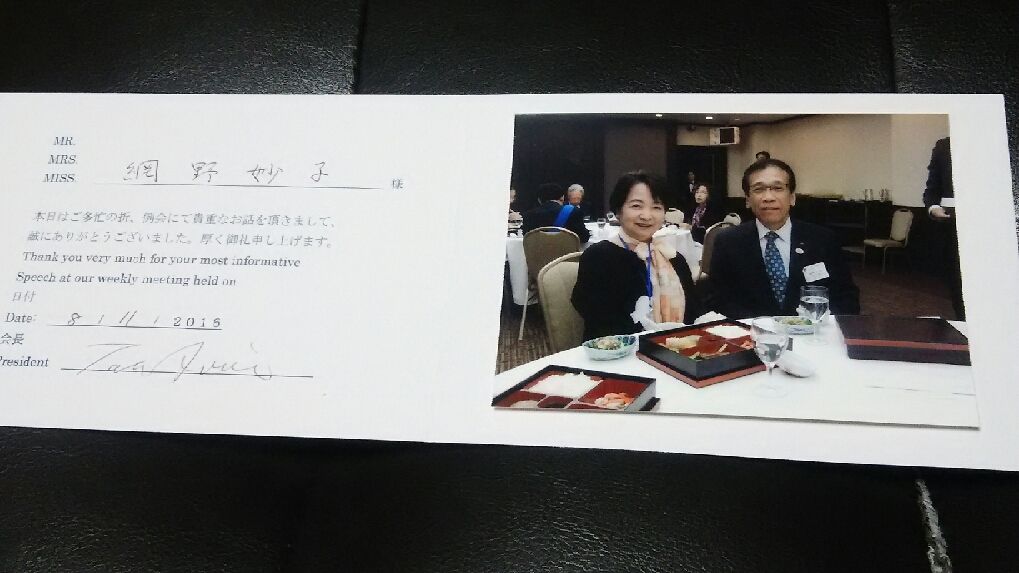 MR.
MRS.
MISS. 網野妙子 様
本日はご多忙の折、例会にて貴重なお話を頂きまして、
誠にありがとうございました。厚く御礼申し上げます。
Thank you very much for your most informative
Speech at our weekly meeting held on
日付
Date: 8 / 11 / 2016
会長
President